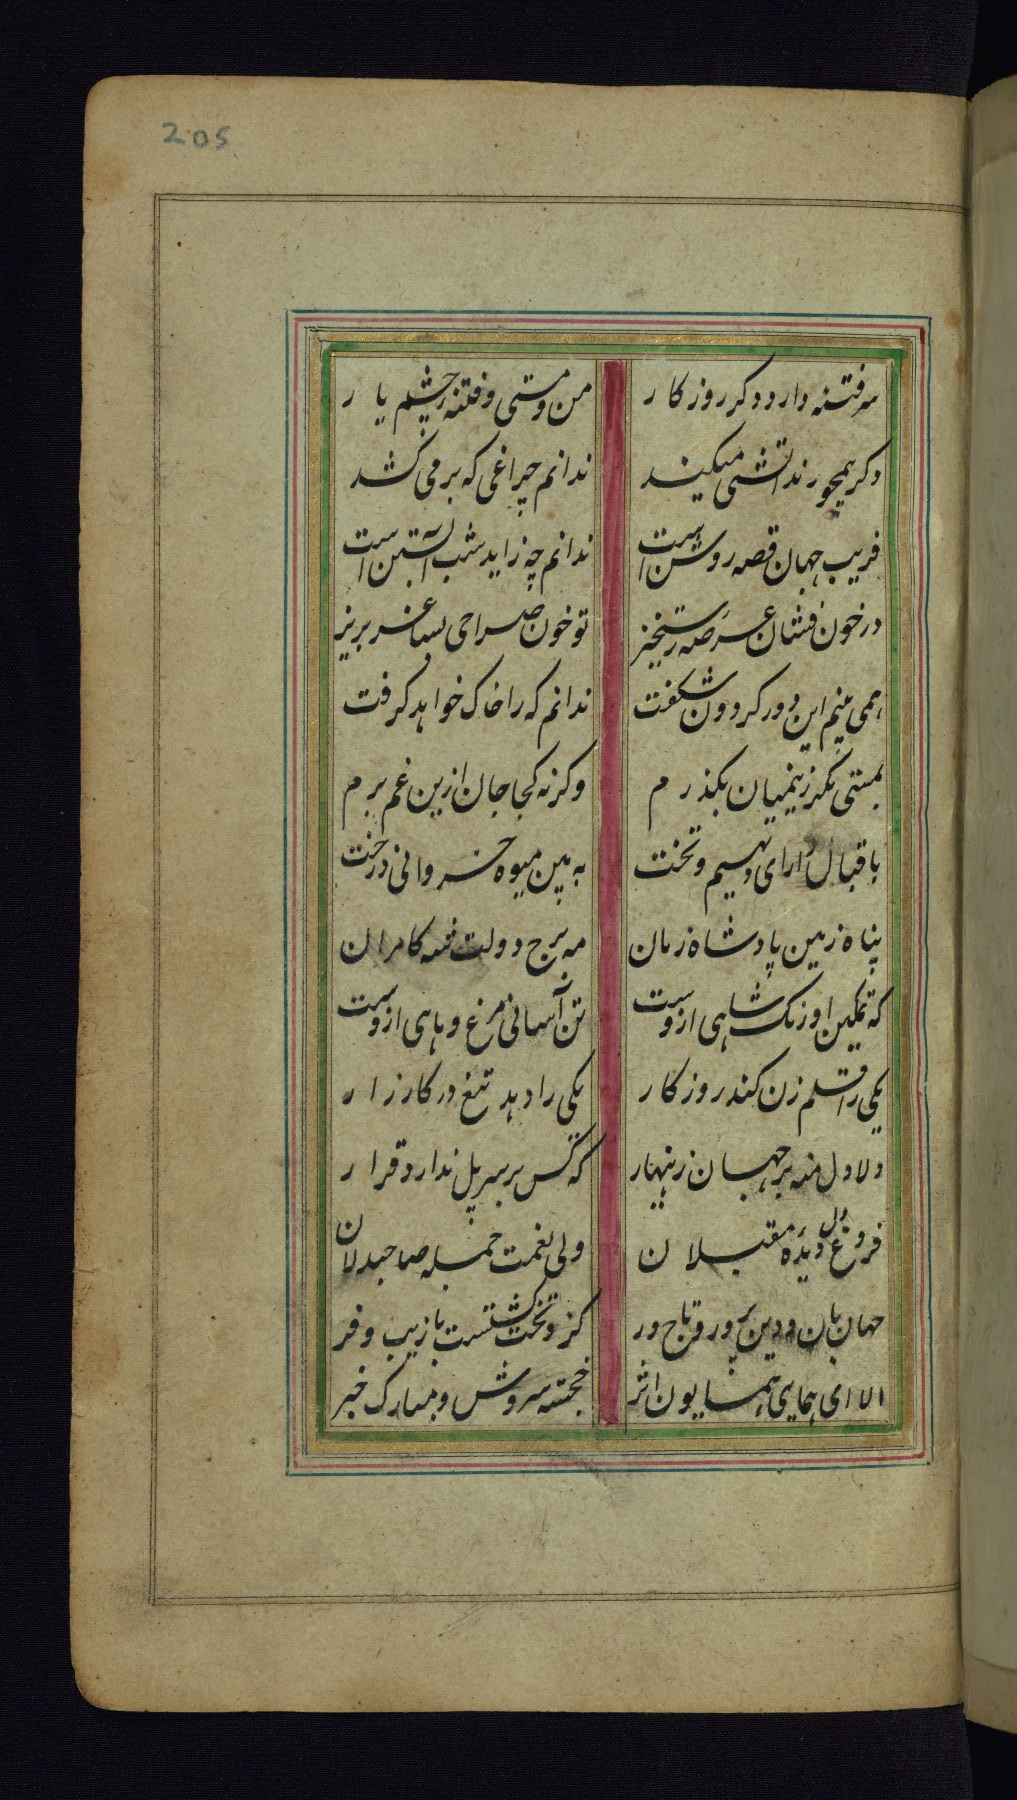 205
سر فتنه دارد دکر روزکار
من و مستی و فتنه چشم یار
دکر همچو رند آتشی میکند
ندانم چراغی که بر می کشد
فریب جهان قصه روشن است
ندانم چه زاید شب آبستن است
در خون فشان عرصه رستخیز
تو خون صراحی بساغر بریز
همی بینم این دور کردون شکفت
ندانم که را خاک خواهد کرفت
بمستی مکر زینمیان بکذرم
وکرنه کجا جان ازین غم برم
باقبال دارای دیهیم و تخت
به بین میوه خسروانی درخت
پناه زمین پادشاه زمان
مه برج دولت شه کامران
که تمکین اورنک شاهی ازوست
تن آسانی مرغ و ماهی ازوست
یکی را قلم زن کند روزکار
یکی را دهد تیغ در کارزار
دلا دل منه بر جهان زینهار
که کس بر سر پل ندارد قرار
فروغ دل و دیده مقبلان
ولی نعمت جمله صاحبدلان
جهان بان و دین پرور و تاج ور
کزو تخت کشتست با زیب و فر
الا ای همای همایون اثر
خجسته سروش و مبارک خبر